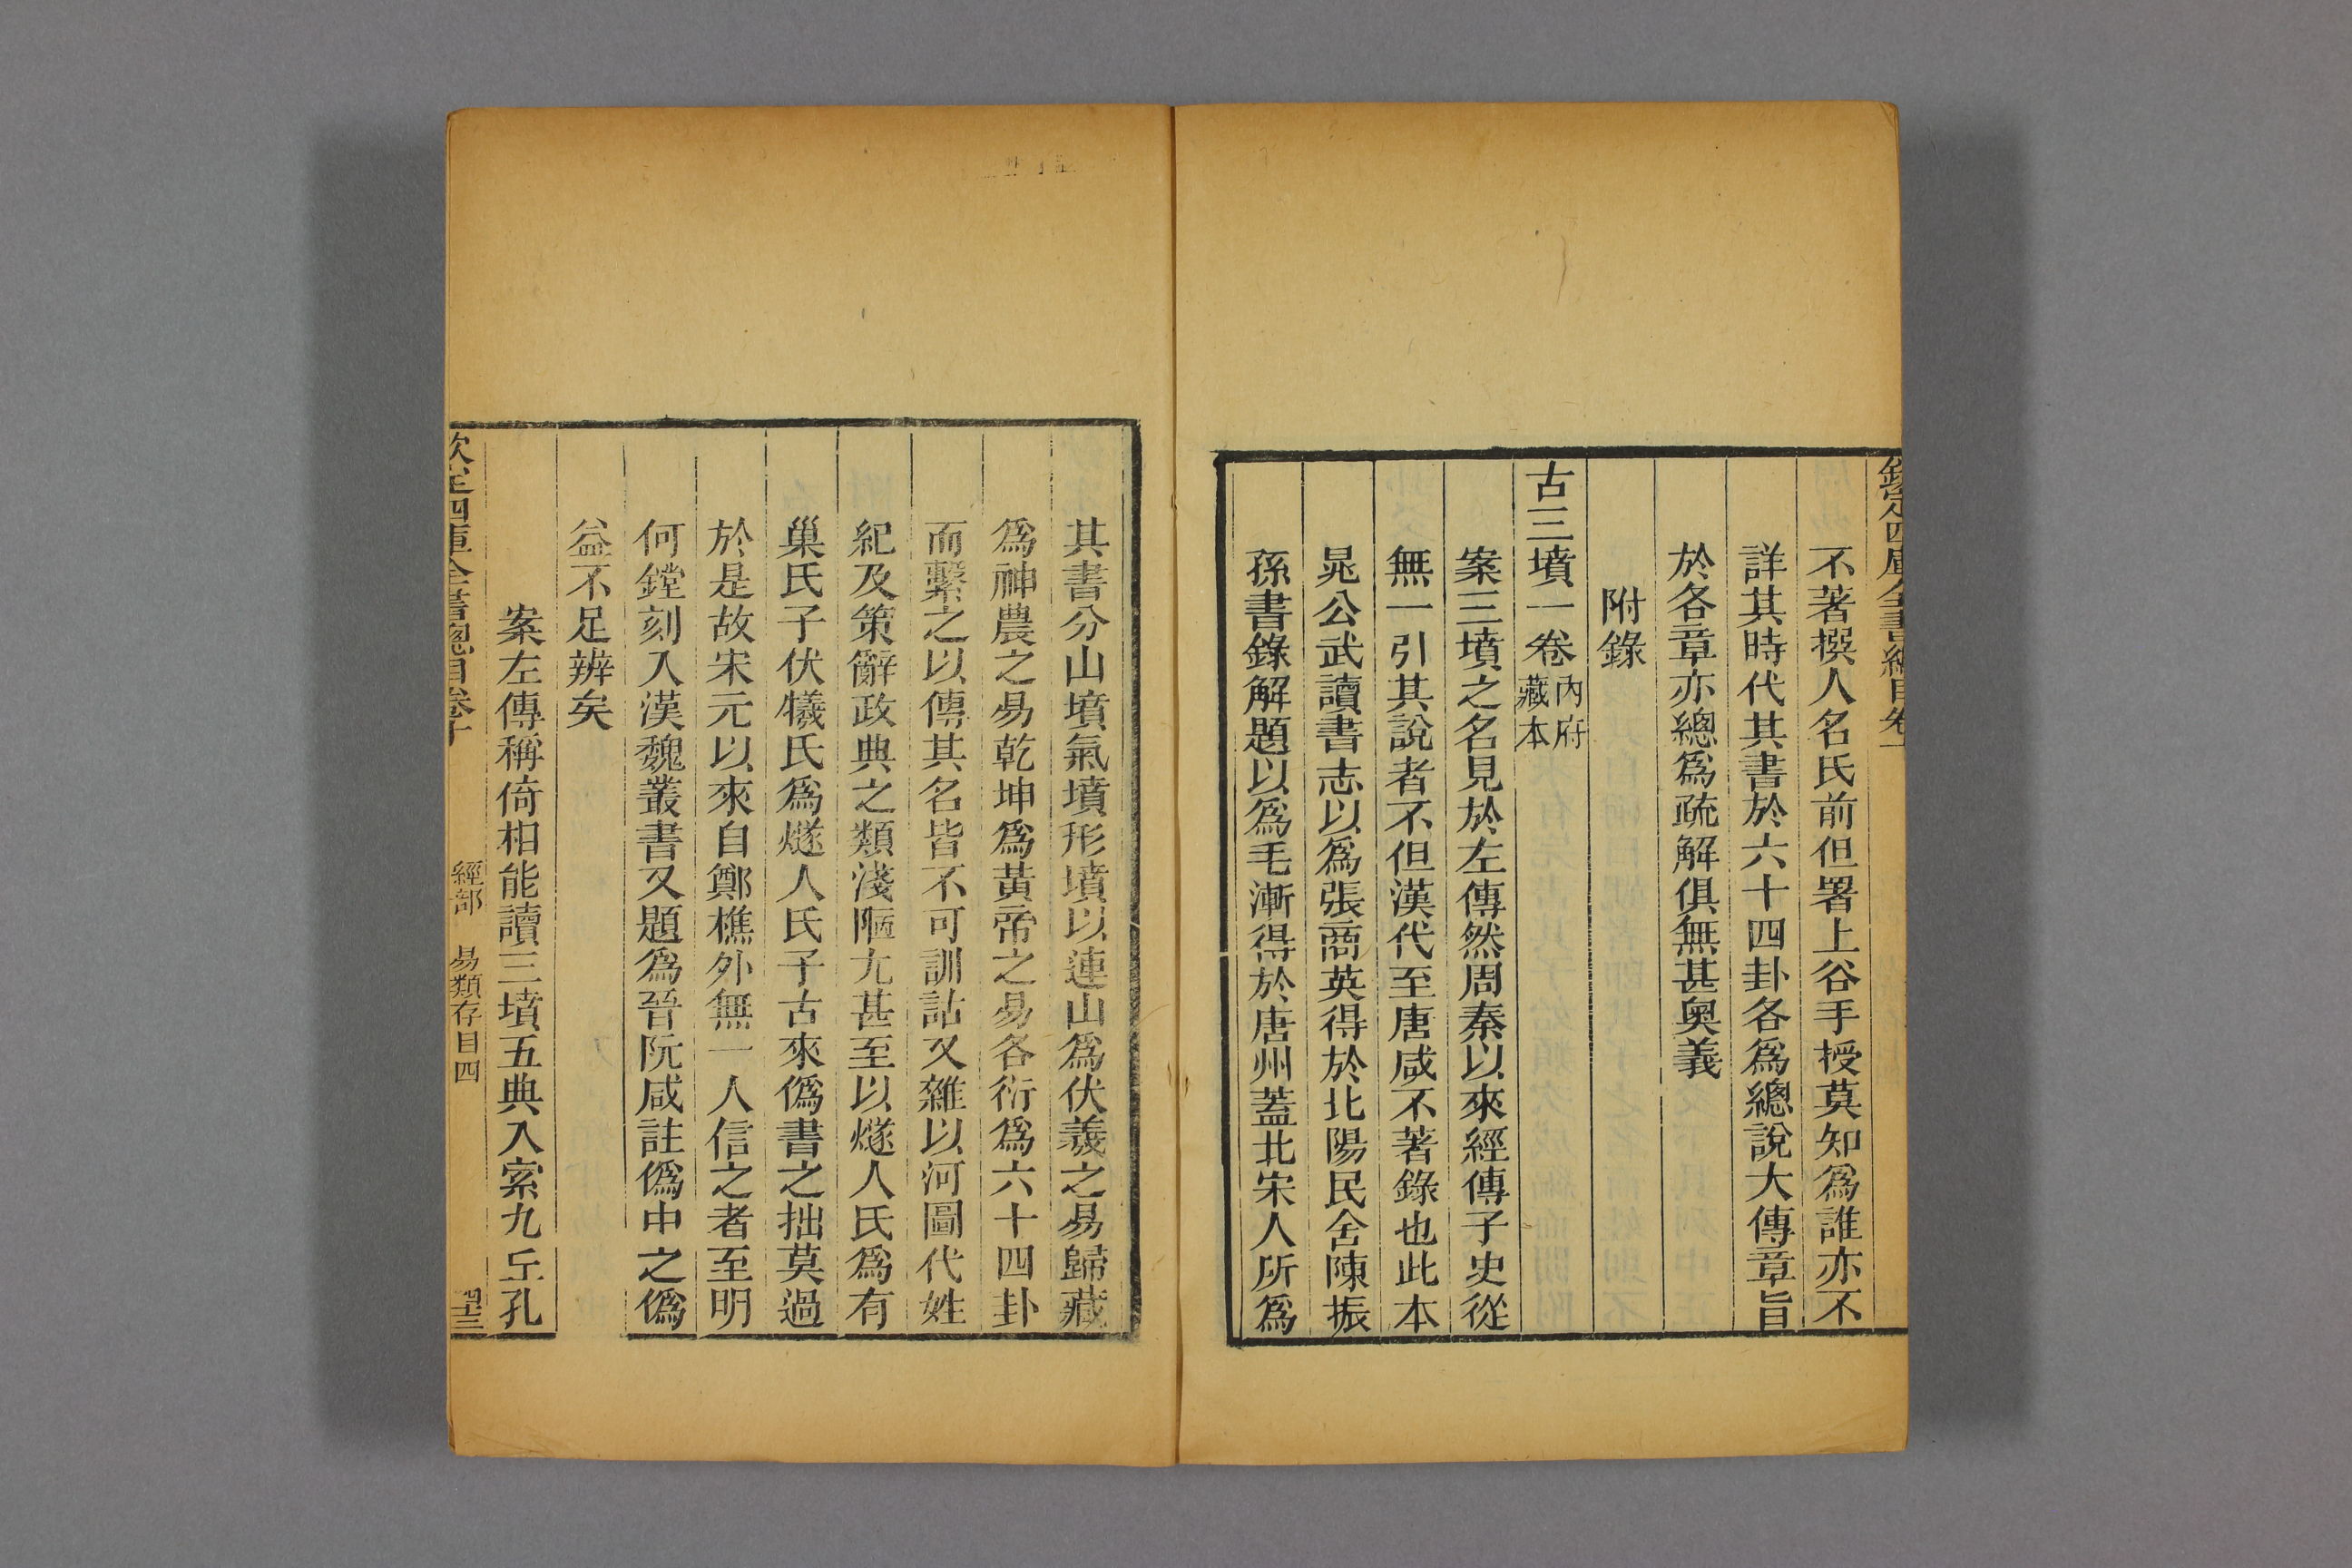 欽定四庫全書總目卷十
不著撰人名氏前但署上谷手授莫知爲誰亦不
詳其時代其書於六十四卦各爲總說大傳章旨
於各章亦總爲疏解俱無甚奧義
附錄
古三墳一卷內府藏本
案三墳之名見於左傳然周秦以來經傳子史從
無一引其說者不但漢代至唐咸不著錄也此本
晁公武讀書志以爲張商英得於北陽民舍陳振
孫書錄解題以爲毛漸得於唐州蓋北宋人所爲
其書分山墳氣墳形墳以連山爲伏羲之易歸藏
爲神農之易乾坤爲黃帝之易各衍爲六十四卦
而繫之以傳其名皆不可訓詁又雜以河圖代姓
紀及策辭政典之類淺陋尤甚至以燧人氏爲有
巢氏子伏犧氏爲燧人氏子古來僞書之拙莫過
於是故宋元以來自鄭樵外無一人信之者至明
何鏜刻入漢魏叢書又題爲晉阮咸註僞中之僞
益不足辨矣
案左傳稱倚相能讀三墳五典八索九丘孔
欽定四庫全書總目卷十 經部 易類存目四 四十三